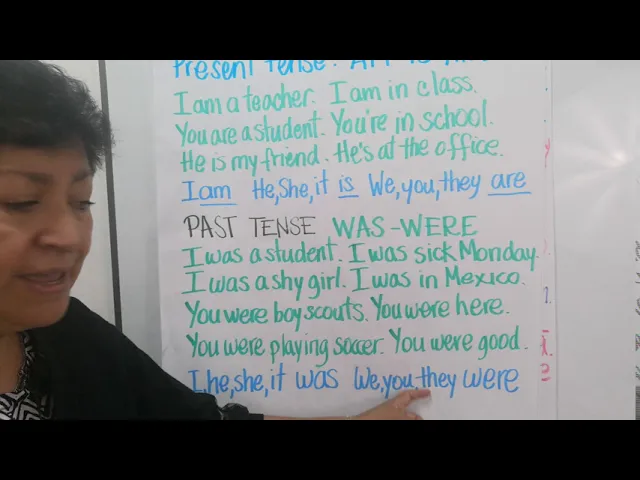 Present Tense:
I am a teacher. I am in class.
You are a student. You're in school.
He is my friend. He's at the office.
I am He, She, it is We, you, they are
PAST TENSE WAS-WERE
I was a student. I was sick Monday.
I was a shy girl. I was in Mexico.
You were boy scouts. You were here.
You were playing soccer. You were good.
I, he, she, it was We, you, they were